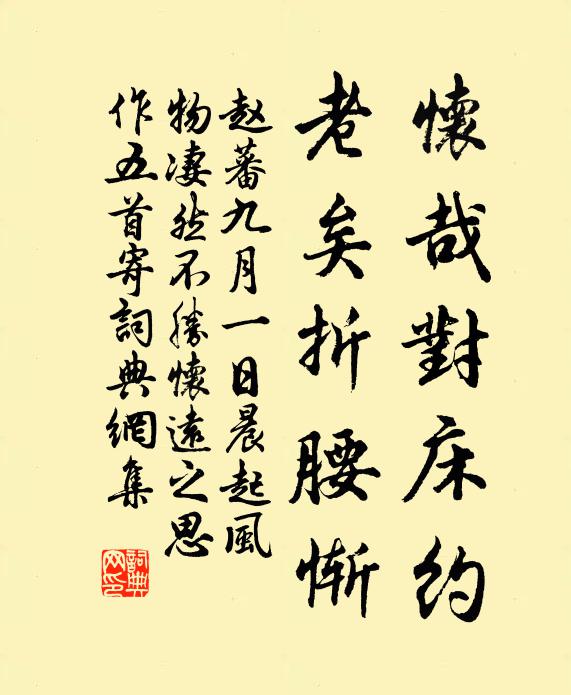 懷哉對床約
老矣折腰慚
赵蕃九月一日晨起風
物凄然不勝懷遠之思
作五首寄詞典網集
詞典
网印